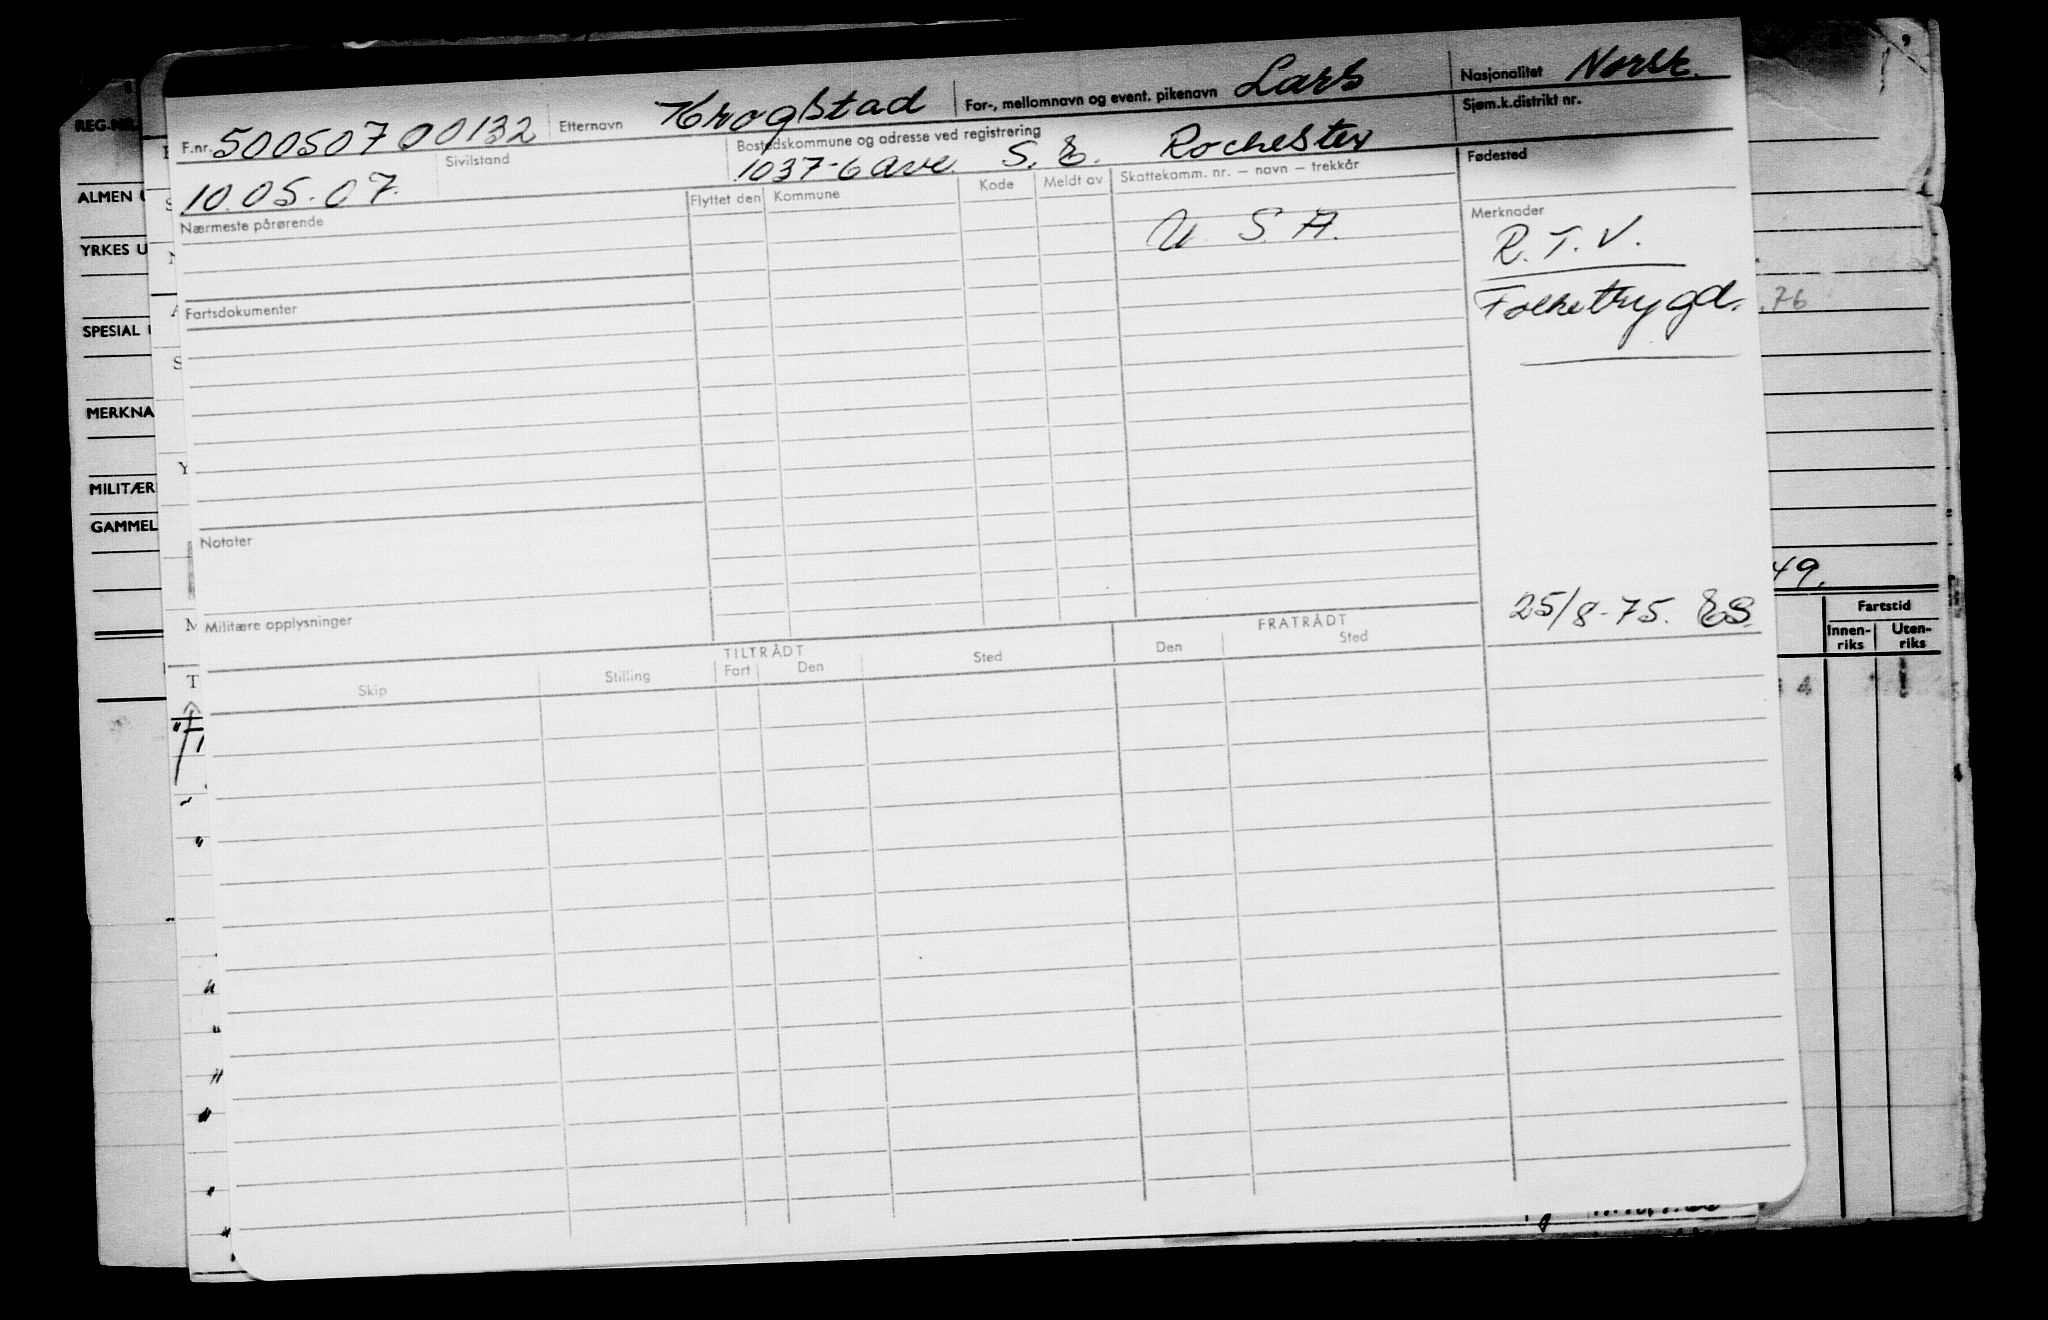 F.nr. 50050700132 Etternavn Krogstad For-, mellomnavn og event. pikenavn Lars Nasjonalitet Norsk.
10.05.07. Sivilstand Bostedskommune og adresse ved registrering Sjøm.k.distrikt nr.
1037-6 ave. S. E. Rochester
Nærmeste pårørende Flyttet den Kommune Kode Meldt av Skattekomm. nr. — navn — trekkår Fødested
U. S. A. Merknader
R. T. V.
Folketrygd.
Fartsdokumenter
Notater
Militære opplysninger
25/8-75. ES.
TILTRÅDT FRATRÅDT
Skip Stilling Fart Den Sted Den Sted
REG.NR.
ALMEN U
YRKES U
SPESIAL U
MERKNA
MILITÆR
GAMMEL
Y
M
T
.76
49.
Fartstid
Innen-
riks
Uten-
riks
4